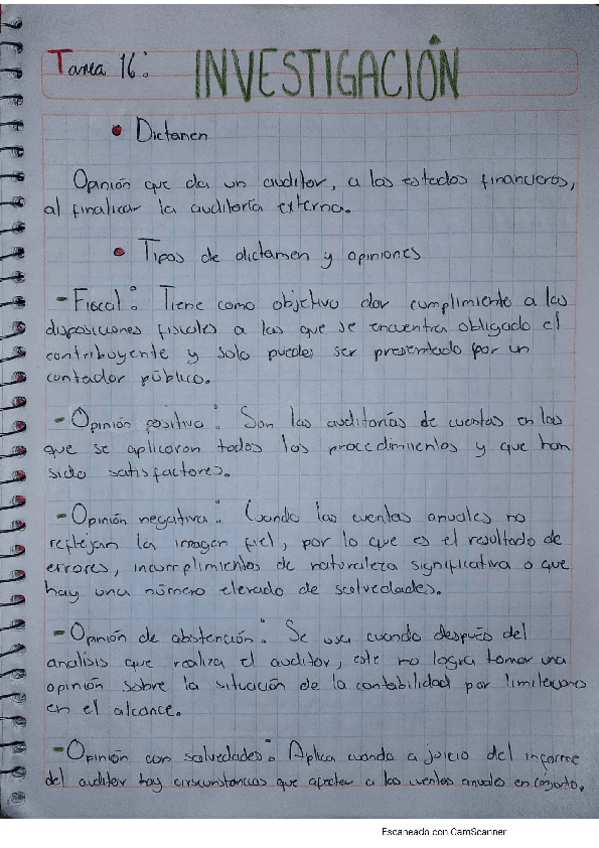 Tarea 16: INVESTIGACIÓN
• Dictamen
Opinión que da un auditor, a los estados financieros,
al finalicar la auditoría externa.
• Tipos de dictamen y opiniones
- Fiscal: Tiene como objetivo dar cumplimiento a las
disposiciones fiscales a las que se encuentra obligado el
contribuyente y solo puedes ser presentado por un
contador público.
- Opinión positiva: Son las auditorías de cuentas en las
que se aplicaron todos los procedimientos y que han
sido satisfactores.
- Opinión negativa: Cuando las cuentas anuales no
reflejan la imagen fiel, por lo que es el resultado de
errores, incumplimientos de naturaleza significativa o que
hay una número elevado de salvedades.
- Opinión de abstención: Se usa cuando después del
analisis que realiza el auditor, este no logra tomar una
opinión sobre la situación de la contabilidad por limitaciones
en el alcance.
- Opinión con salvedades: Aplica cuando a juicio del informe
del auditor hay circunstancias que afectan a las cuentas anuales en conjunto.
Escaneado con CamScanner